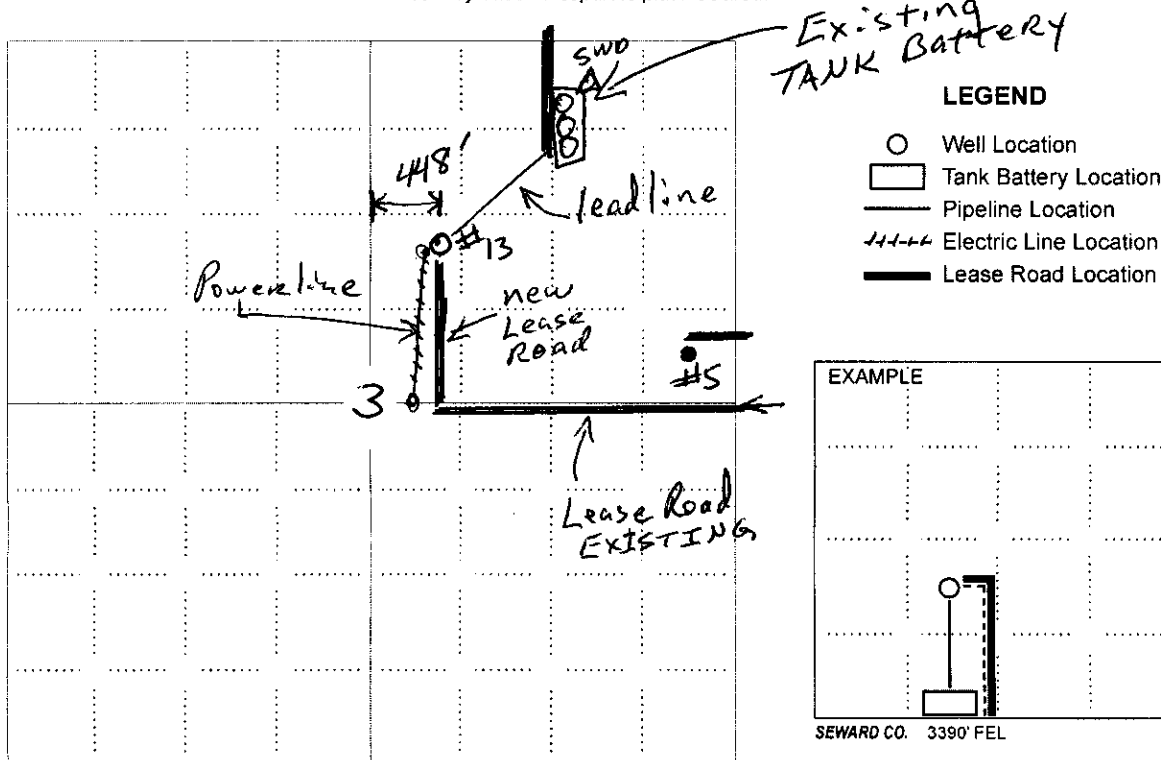 Existing
TANK Battery
SWD
448'
leadline
#13
Powerline
new
Lease
Road
#5
3
Lease Road
EXISTING
LEGEND
Well Location
Tank Battery Location
Pipeline Location
Electric Line Location
Lease Road Location
EXAMPLE
SEWARD CO. 3390' FEL